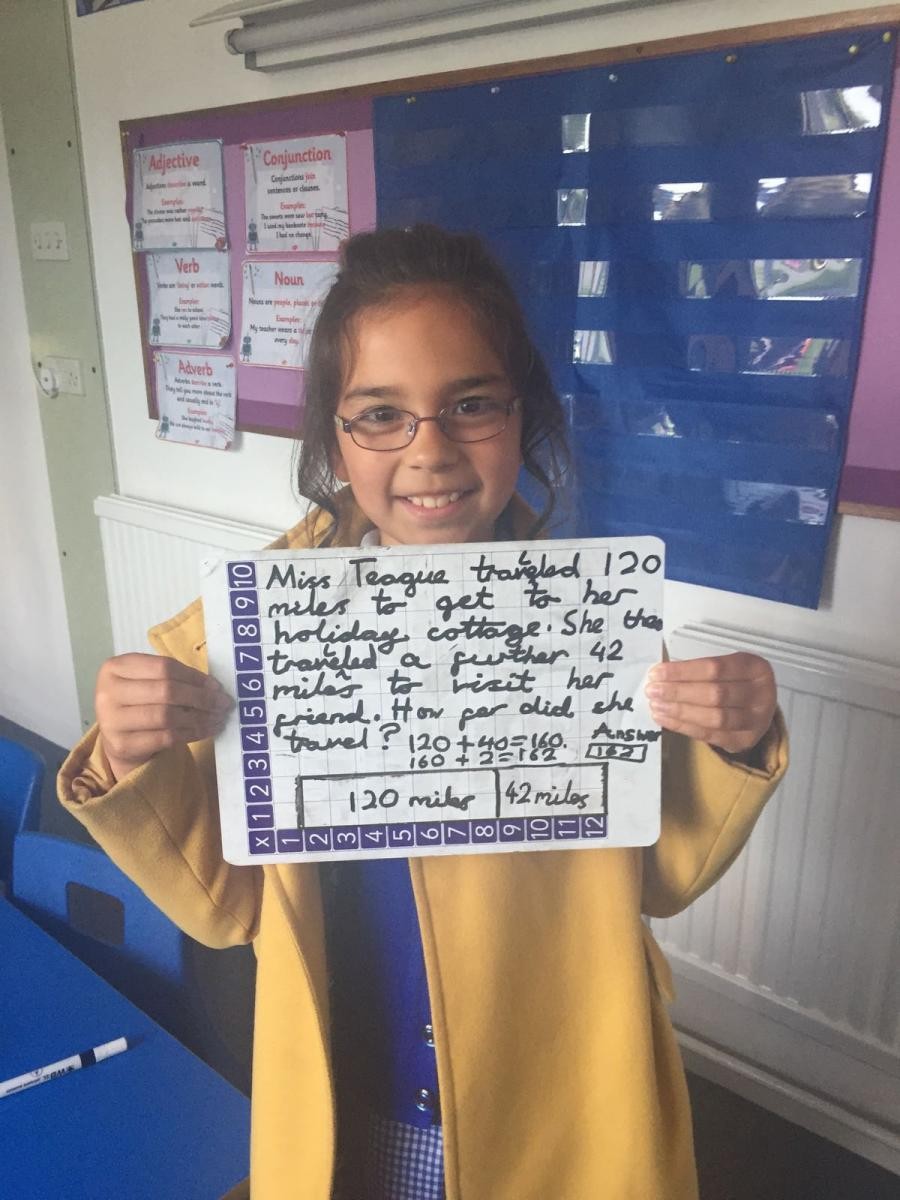 Adjective
Adjectives describe a word.
Examples:
Conjunction
Conjunctions join
sentences or clauses.
Examples:
The sweets were sour but tasty.
I used my banknote because
I had no change.
Verb
Verbs are 'being' or action words.
Examples:
to each other
Noun
Nouns are people, places or
Examples:
My teacher wears a
every day.
Adverb
Adverbs describe a verb.
They tell you more about the verb
and usually end in 'ly'.
Examples:
Miss Teague traveled 120
miles to get to her
holiday cottage. She then
traveled a further 42
miles to visit her
friend. How far did she
travel? 120 + 40 = 160.
160 + 2 = 162
Answer
162
120 miles 42 miles
10
9
8
7
6
5
4
3
2
1
x
1 2 3 4 5 6 7 8 9 10 11 12